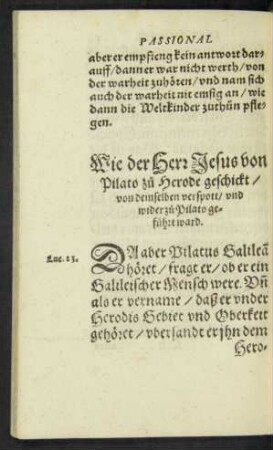 PASSIONAL
aber er empfieng kein antwort dar-
auff/dann er war nicht werth/von
der warheit zuhören/vnd nam sich
auch der warheit nit emsig an/wie
dann die Weltkinder zuthůn pfle-
gen.
Wie der Herr Jesus von
Pilato zů Herode geschickt/
von demselben verspott/vnd
wider zů Pilato ge-
führt ward.
Luc. 23.
DA aber Pilatus Galileā
höret/fragt er/ob er ein
Galileischer Mensch were. Vn̄
als er vername/daß er vnder
Herodis Gebiet vnd Oberkeit
gehöret/vbersandt er jhn dem
Hero-